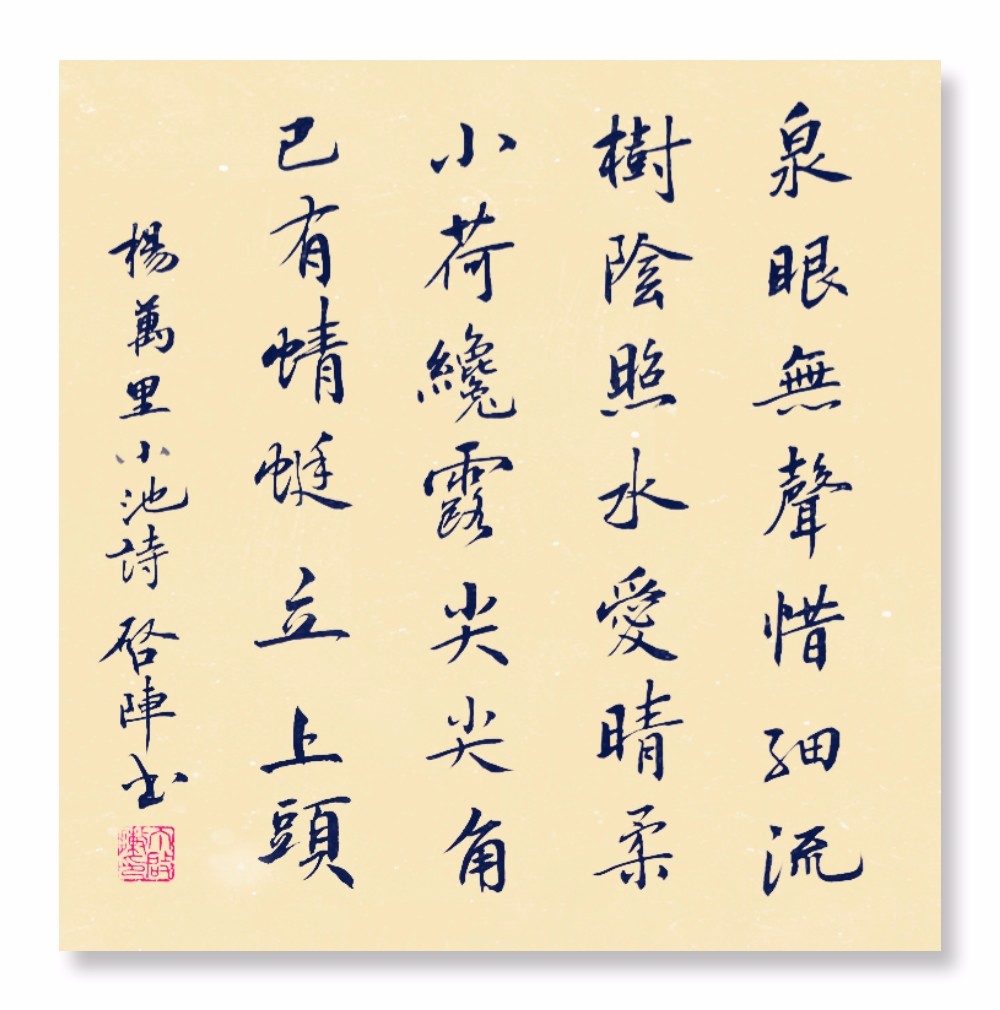 泉眼無聲惜細流
樹陰照水愛晴柔
小荷纔露尖尖角
已有蜻蜓立上頭
楊萬里小池詩啓陣書